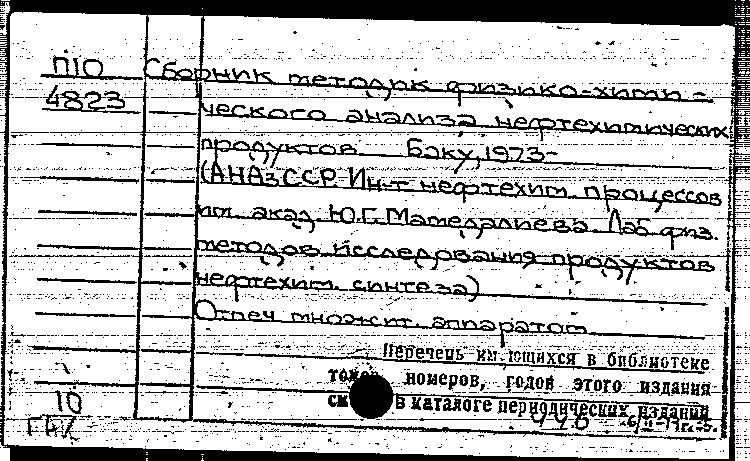 П10 Сборник методик физико-хими-
4823 ческого анализа нефтехимических
продуктов Баку, 1973-
(АНАзССР. Ин-т нефтехим. процессов
им. акад. Ю.Г. Мамедалиева. Лаб физ.
методов исследования продуктов
нефтехим. синтеза)
Отпеч. множит. аппаратом
Перечень имеющихся в библиотеке
номеров, годов этого издания
в каталоге периодических изданий
10